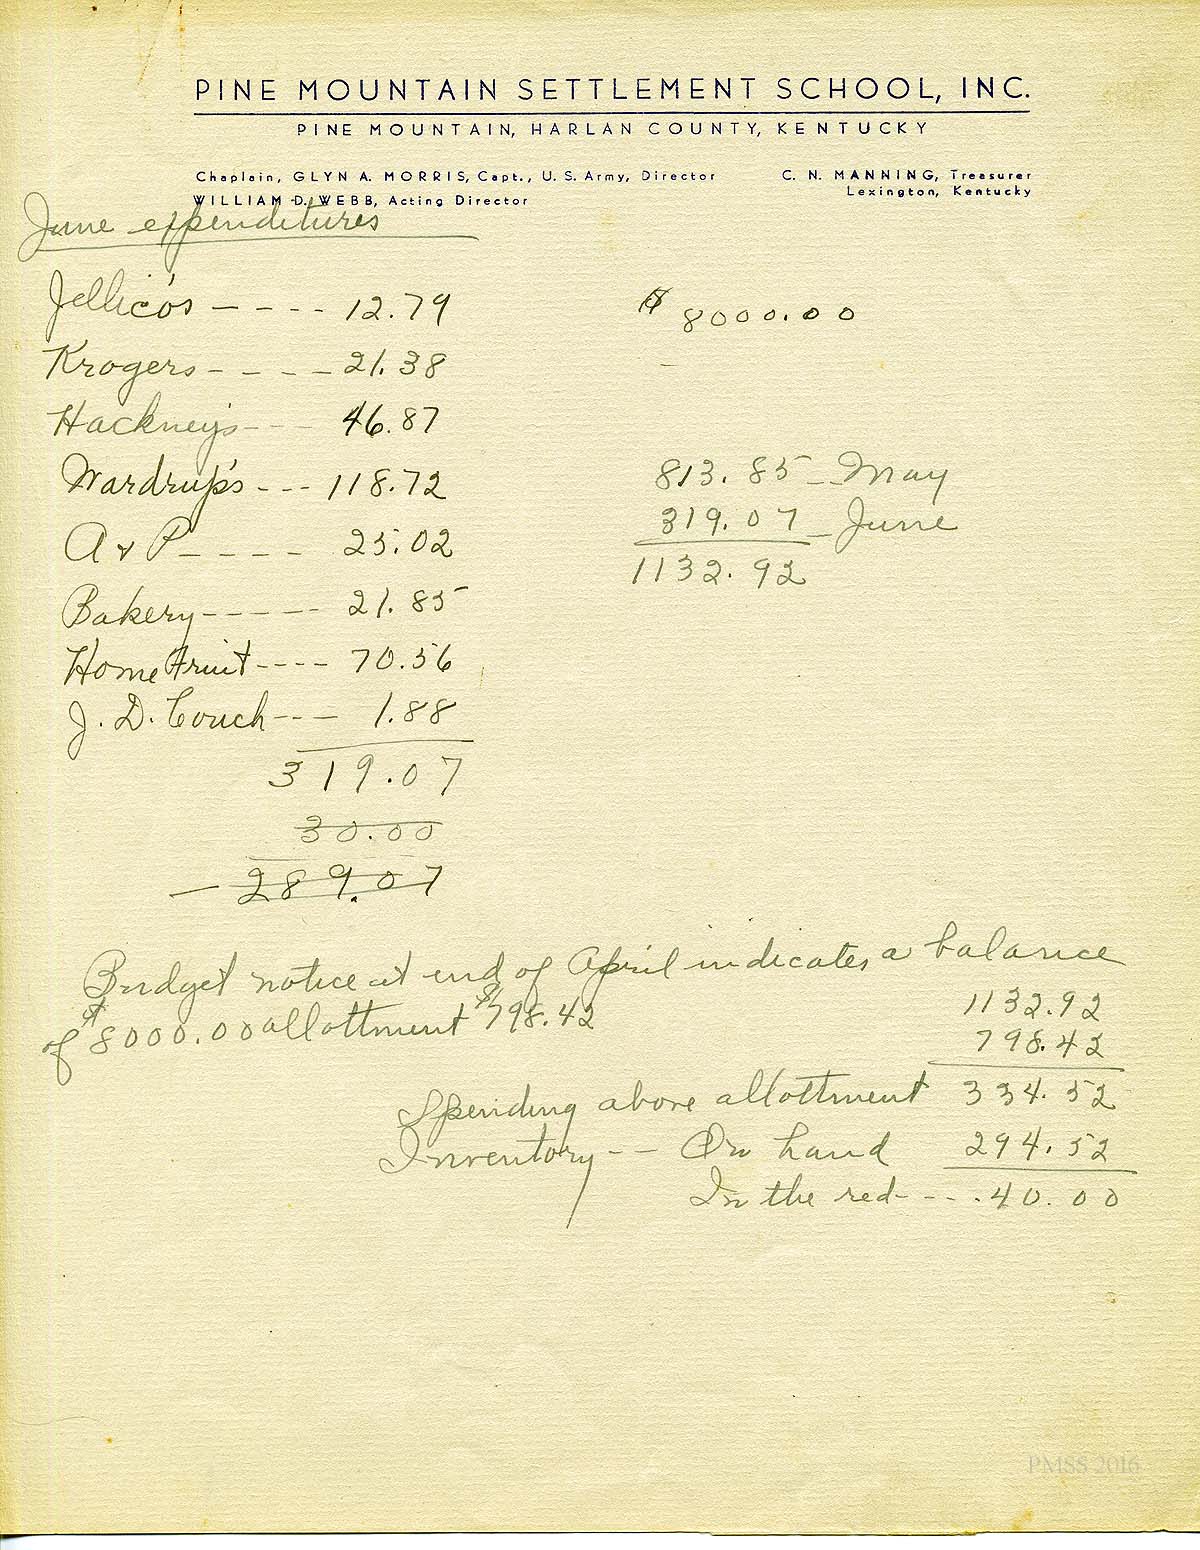 PINE MOUNTAIN SETTLEMENT SCHOOL, INC.
PINE MOUNTAIN, HARLAN COUNTY, KENTUCKY
Chaplain, GLYN A. MORRIS, Capt., U. S. Army, Director
WILLIAM D. WEBB, Acting Director
C. N. MANNING, Treasurer
Lexington, Kentucky
June expenditures
Jellico's - - - - 12.79
Krogers - - - - - 21.38
Hackney's - - - 46.87
Wardrup's - - - 118.72
A & P - - - - 25.02
Bakery - - - - - 21.85
Home Fruit - - - - 70.56
J. D. Couch - - - 1.88
319.07
30.00
- 289.07
$ 8000.00
813.85 - May
319.07 - June
1132.92
Budget notice at end of April indicates a balance
of $8000.00 allottment $798.42
1132.92
798.42
Spending above allottment 334.52
Inventory - - On hand 294.52
In the red - - - . 40.00
PMSS 2016